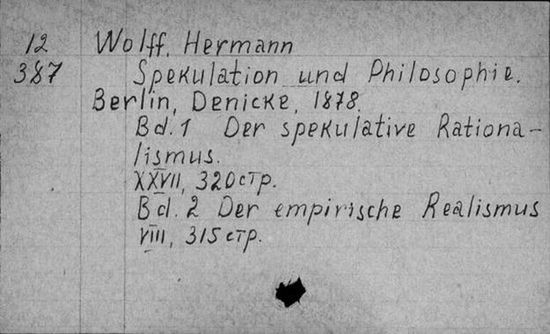 12 Wolff. Hermann
387 Spekulation und Philosophie.
Berlin, Denicke, 1878.
Bd. 1 Der spekulative Rationa-
lismus.
XXVII, 320 стр.
Bd. 2 Der empirische Realismus
VIII, 315 стр.